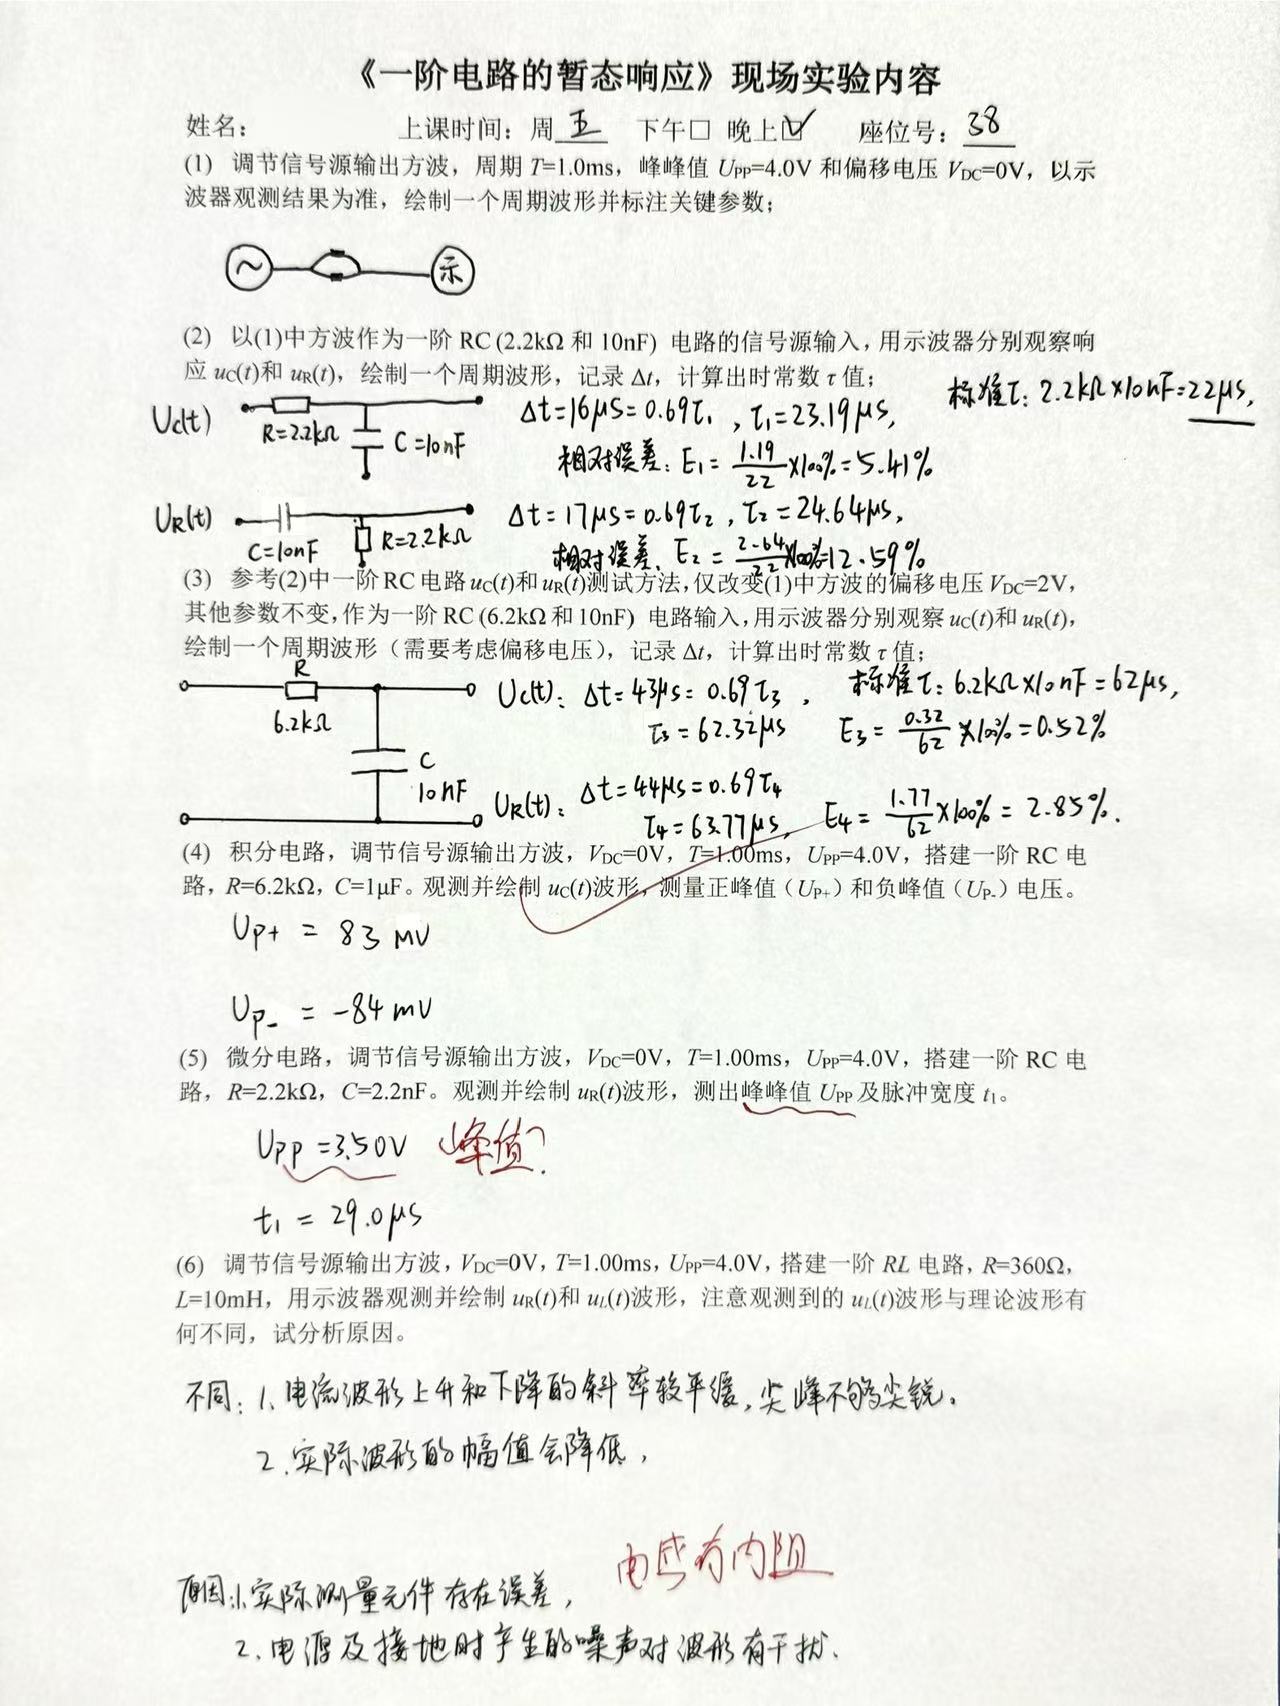 《一阶电路的暂态响应》现场实验内容
姓名： 上课时间：周 五 下午□ 晚上☑ 座位号：38
(1) 调节信号源输出方波，周期 T=1.0ms，峰峰值 UPP=4.0V 和偏移电压 VDC=0V，以示
波器观测结果为准，绘制一个周期波形并标注关键参数；
~ 示
(2) 以(1)中方波作为一阶 RC (2.2kΩ 和 10nF) 电路的信号源输入，用示波器分别观察响
应 uC(t)和 uR(t)，绘制一个周期波形，记录 Δt，计算出时常数 τ 值；
标准τ: 2.2kΩ×10nF=22μs,
Uc(t) R=2.2kΩ C=10nF Δt=16μs=0.69τ1 , τ1=23.19μs,
相对误差: E1= 1.19/22 ×100%=5.41%
UR(t) C=10nF R=2.2kΩ Δt=17μs=0.69τ2 , τ2=24.64μs,
相对误差. E2= 2.64/22 ×100%=12.59%
(3) 参考(2)中一阶 RC 电路 uC(t)和 uR(t)测试方法，仅改变(1)中方波的偏移电压 VDC=2V，
其他参数不变，作为一阶 RC (6.2kΩ 和 10nF) 电路输入，用示波器分别观察 uC(t)和 uR(t)，
绘制一个周期波形（需要考虑偏移电压），记录 Δt，计算出时常数 τ 值；
R 6.2kΩ C 10nF
Uc(t): Δt=43μs=0.69τ3 , 标准τ: 6.2kΩ×10nF=62μs,
τ3=62.32μs E3= 0.32/62 ×100%=0.52%
UR(t): Δt=44μs=0.69τ4
τ4=63.77μs, E4= 1.77/62 ×100%=2.85%.
(4) 积分电路，调节信号源输出方波，VDC=0V，T=1.00ms，UPP=4.0V，搭建一阶 RC 电
路，R=6.2kΩ，C=1μF。观测并绘制 uC(t)波形，测量正峰值（UP+）和负峰值（UP-）电压。
Up+ = 83 mV
Up- = -84mV
(5) 微分电路，调节信号源输出方波，VDC=0V，T=1.00ms，UPP=4.0V，搭建一阶 RC 电
路，R=2.2kΩ，C=2.2nF。观测并绘制 uR(t)波形，测出峰峰值 UPP 及脉冲宽度 t1。
Upp =3.50V 峰值?
t1 = 29.0μs
(6) 调节信号源输出方波，VDC=0V，T=1.00ms，UPP=4.0V，搭建一阶 RL 电路，R=360Ω，
L=10mH，用示波器观测并绘制 uR(t)和 uL(t)波形，注意观测到的 uL(t)波形与理论波形有
何不同，试分析原因。
不同: 1. 电流波形上升和下降的斜率较平缓, 尖峰不够尖锐.
2. 实际波形的幅值会降低,
电感有内阻
原因:1.实际测量元件存在误差,
2. 电源及接地时产生的噪声对波形有干扰.